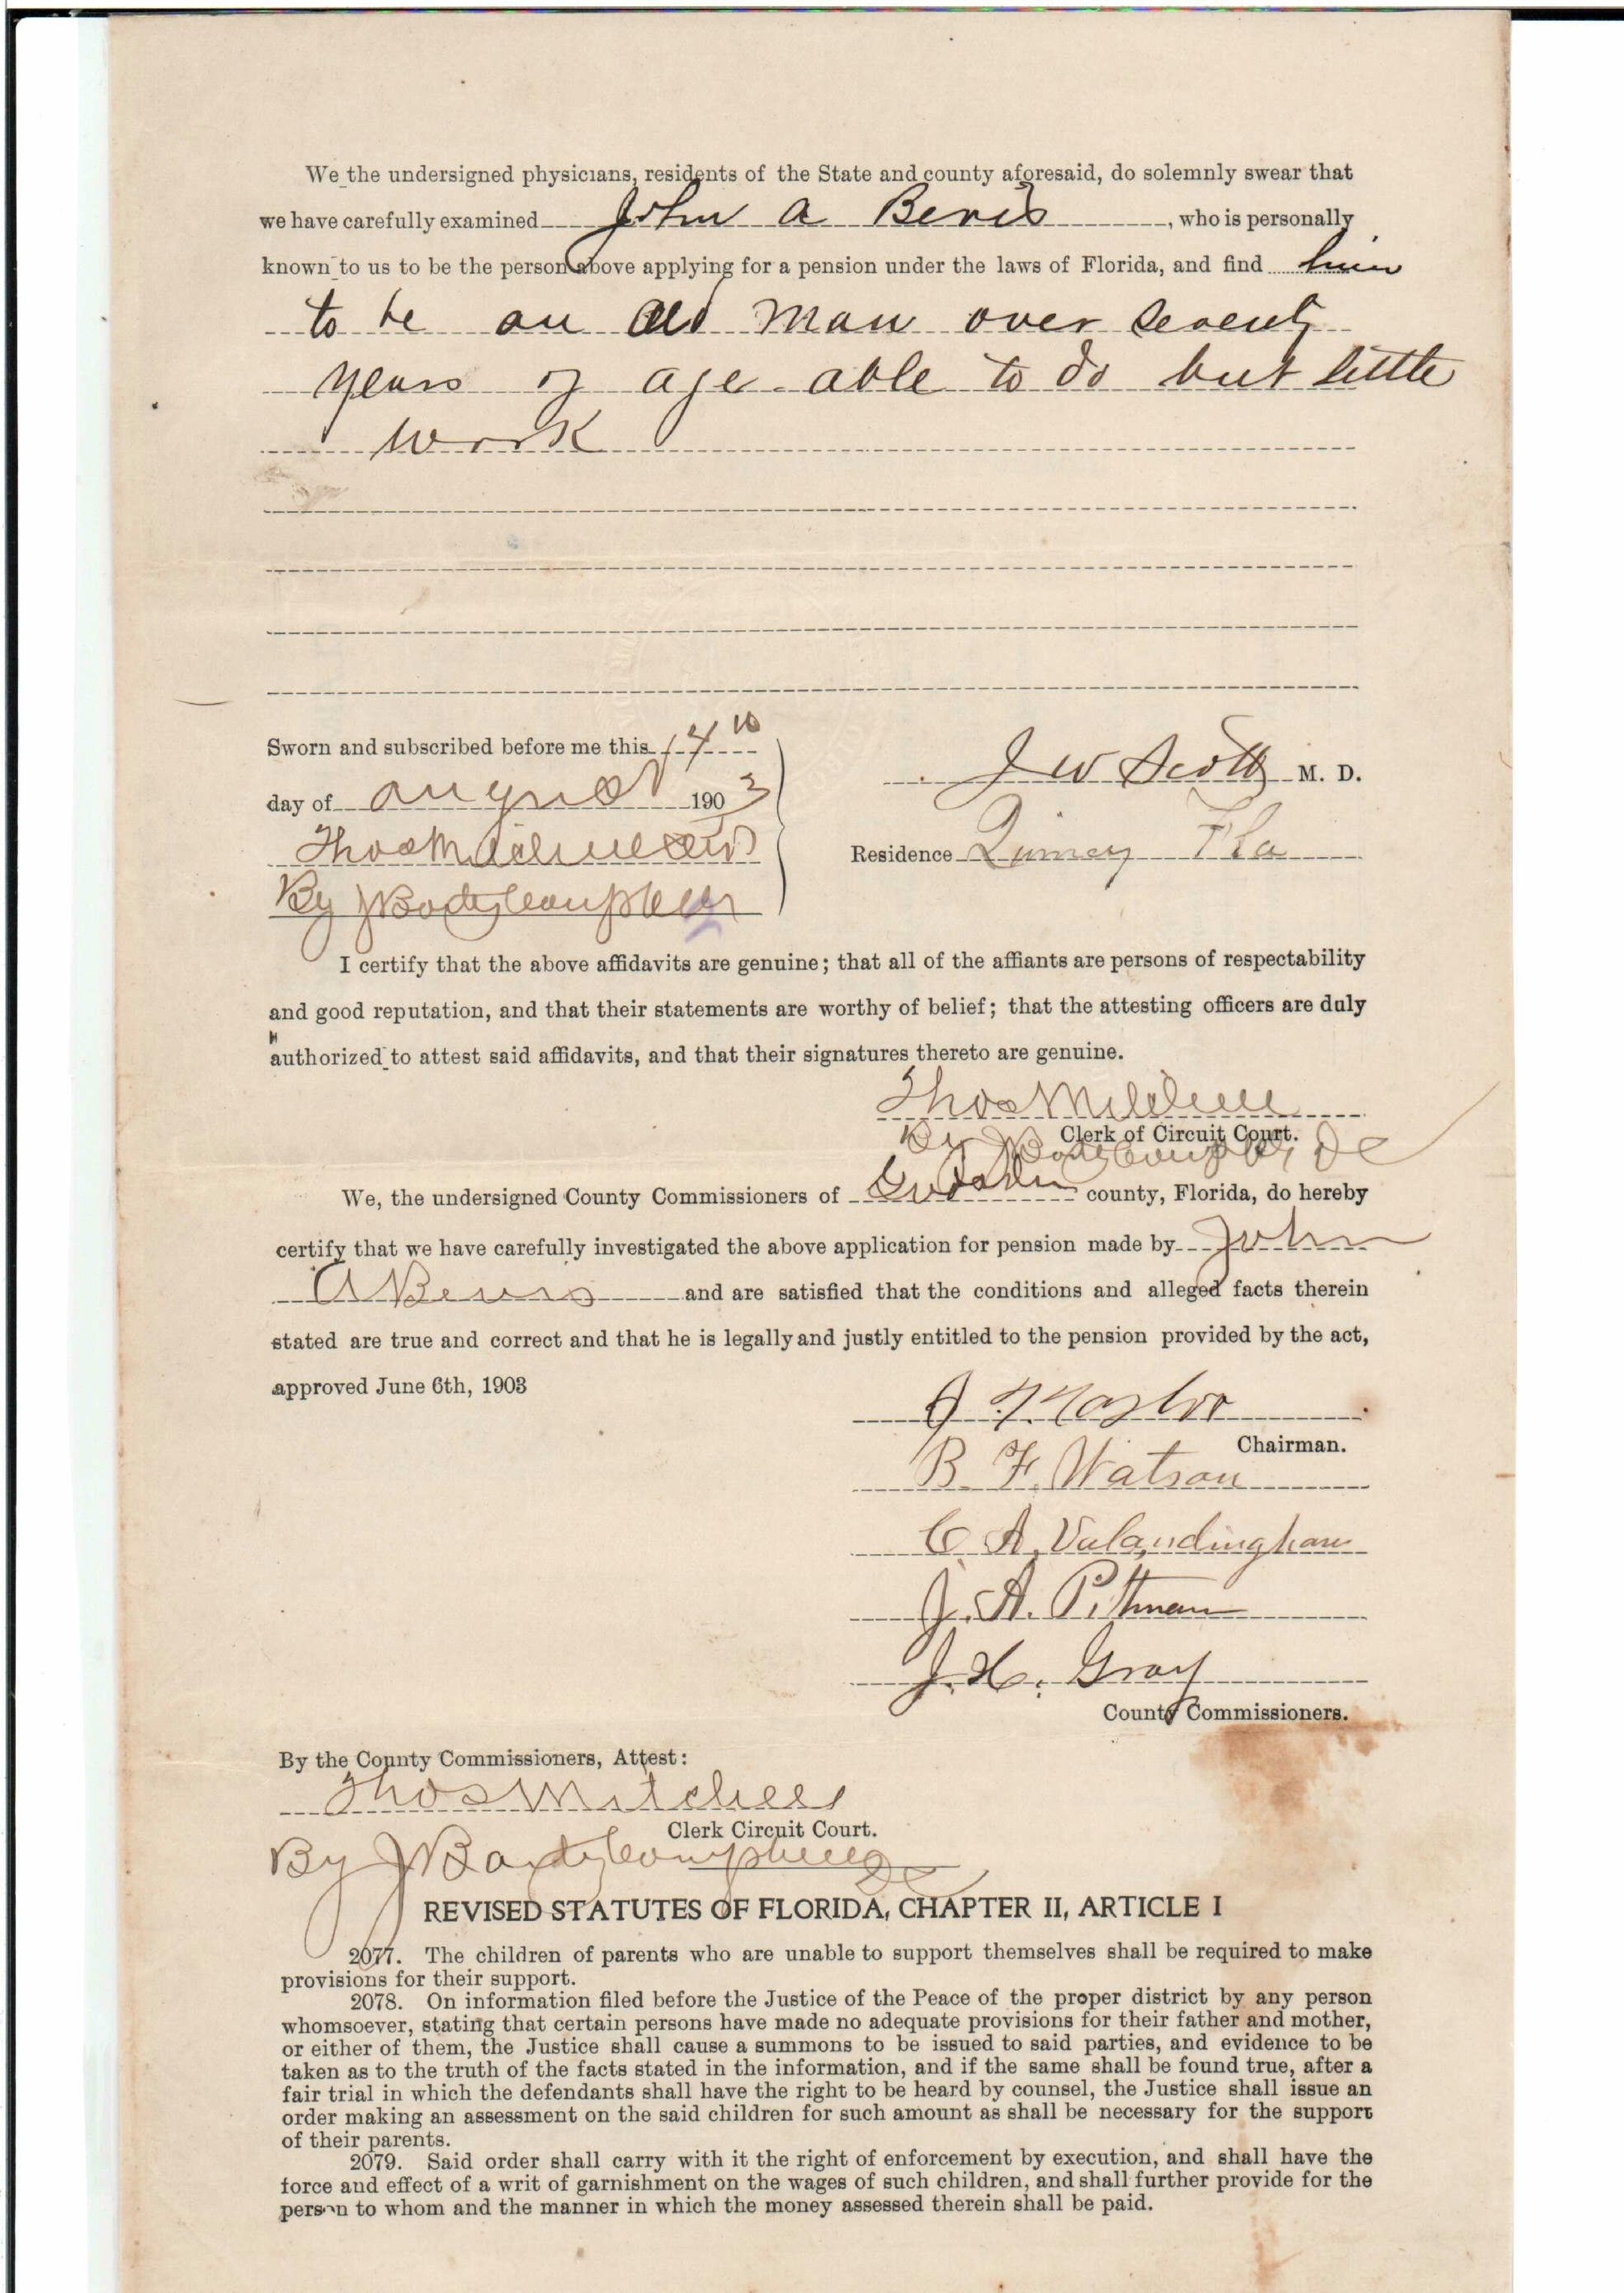 We the undersigned physicians, residents of the State and county aforesaid, do solemnly swear that
we have carefully examined John A Bevis, who is personally
known to us to be the person above applying for a pension under the laws of Florida, and find him
to be an old man over seventy
years of age able to do but little
work
Sworn and subscribed before me this 14th
day of August 1903
Thos Mitchell
By J Baxty Campbell
J W Scott M. D.
Residence Quincy Fla
I certify that the above affidavits are genuine; that all of the affiants are persons of respectability
and good reputation, and that their statements are worthy of belief; that the attesting officers are duly
authorized to attest said affidavits, and that their signatures thereto are genuine.
Thos Mitchell
Clerk of Circuit Court.
By J Campbell DC
We, the undersigned County Commissioners of Gadsden county, Florida, do hereby
certify that we have carefully investigated the above application for pension made by John
A Bevis and are satisfied that the conditions and alleged facts therein
stated are true and correct and that he is legally and justly entitled to the pension provided by the act,
approved June 6th, 1903
Chairman.
B. F. Watson
C. A. Valandingham
J. A. Pittman
J. H. Gray
County Commissioners.
By the County Commissioners, Attest:
Thos Mitchell
Clerk Circuit Court.
By J Campbell
REVISED STATUTES OF FLORIDA, CHAPTER II, ARTICLE I
2077. The children of parents who are unable to support themselves shall be required to make
provisions for their support.
2078. On information filed before the Justice of the Peace of the proper district by any person
whomsoever, stating that certain persons have made no adequate provisions for their father and mother,
or either of them, the Justice shall cause a summons to be issued to said parties, and evidence to be
taken as to the truth of the facts stated in the information, and if the same shall be found true, after a
fair trial in which the defendants shall have the right to be heard by counsel, the Justice shall issue an
order making an assessment on the said children for such amount as shall be necessary for the support
of their parents.
2079. Said order shall carry with it the right of enforcement by execution, and shall have the
force and effect of a writ of garnishment on the wages of such children, and shall further provide for the
person to whom and the manner in which the money assessed therein shall be paid.